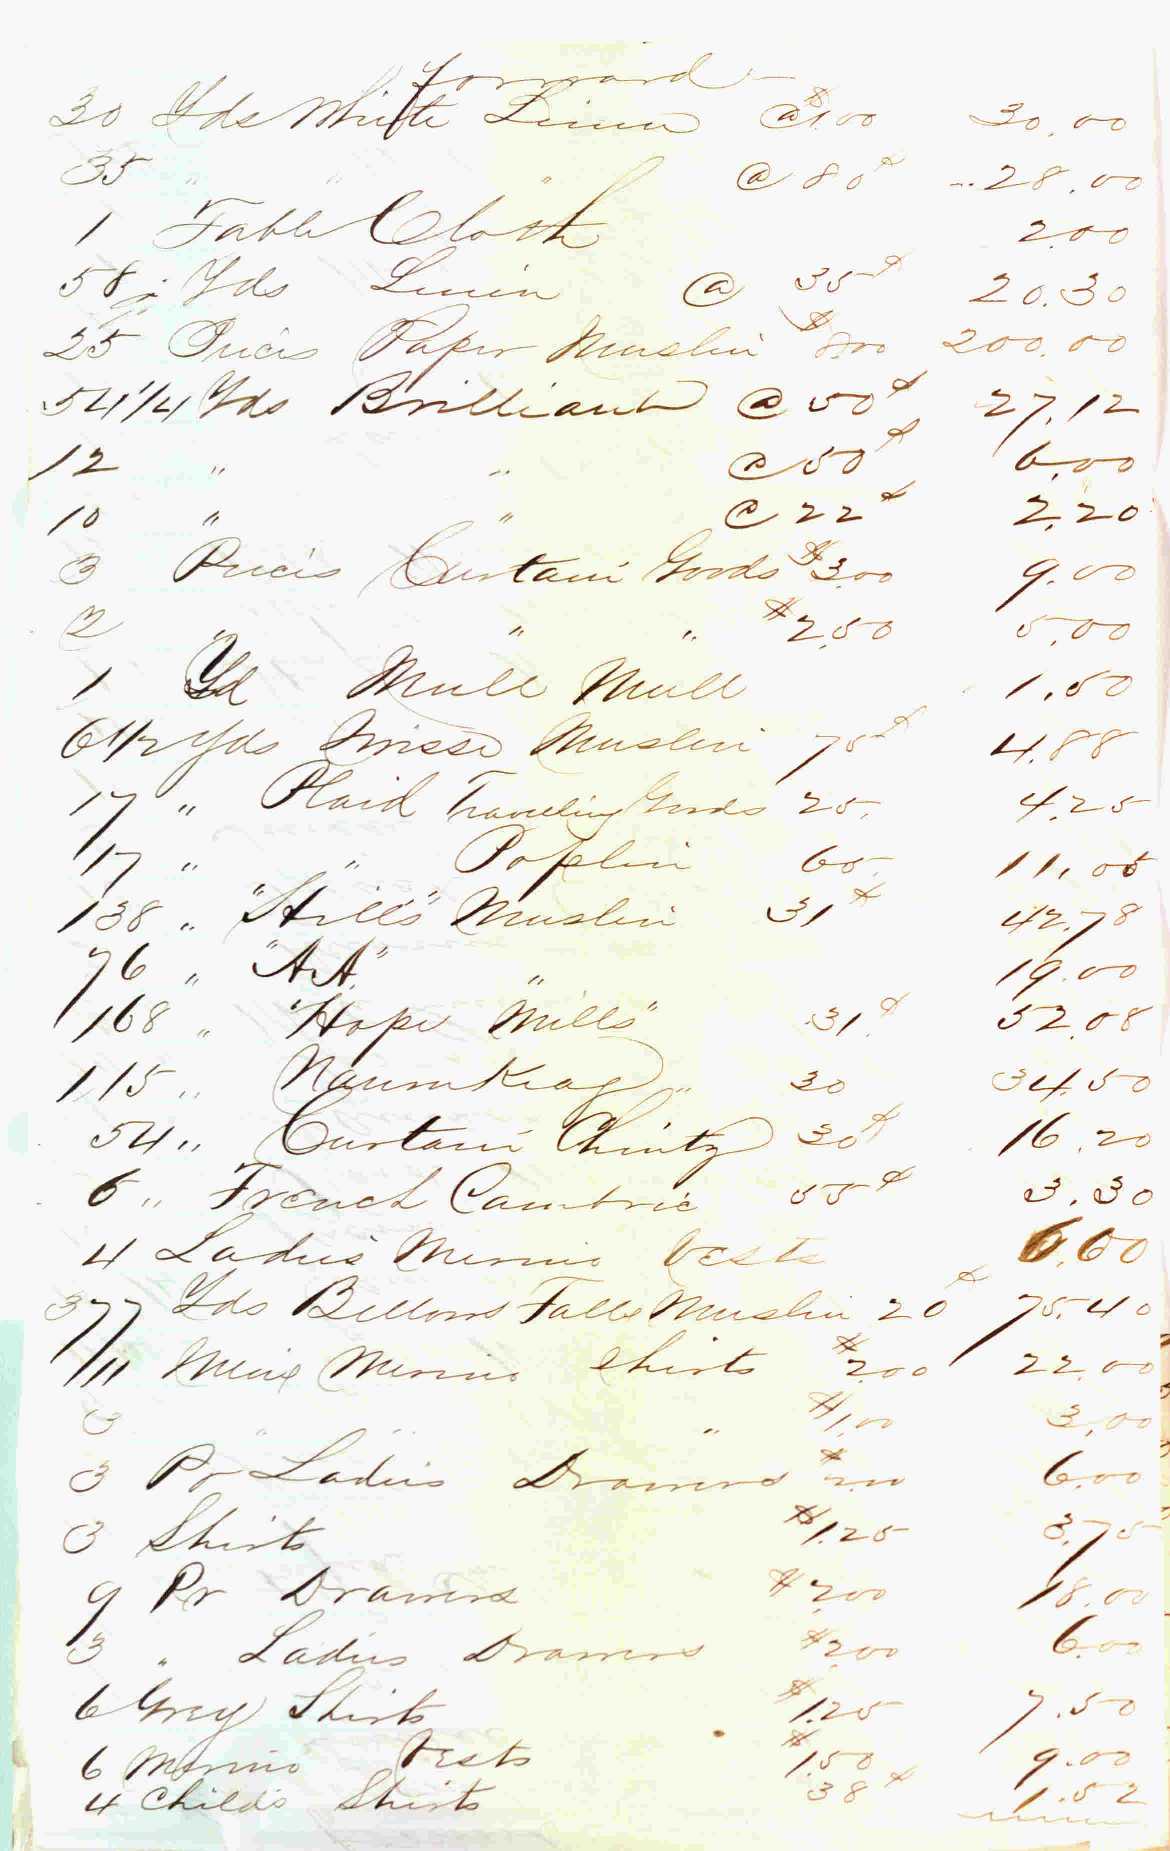 Forward
30 Yds White Linen @ $1.00 30.00
35 " " " @ 80¢ 28.00
1 Table Cloth 2.00
58 Yds Linen @ 35¢ 20.30
25 Pieces Paper Muslin $8.00 200.00
54 1/4 Yds Brilliant @ 50¢ 27.12
12 " " @ 50¢ 6.00
10 " " @ 22¢ 2.20
3 Pieces Curtain Goods $3.00 9.00
2 " " " $2.50 5.00
1 Yd Mull Mull 1.50
6 1/2 Yds Swisse Muslin 75¢ 4.88
17 " Plaid Traveling Goods 25. 4.25
17 " " Poplin 65. 11.05
138 " "Hills" Muslin 31¢ 42.78
76 " "AA" " 19.00
168 " "Hope Mills" 31¢ 52.08
115 " Naumkeag " 30 34.50
54 " Curtain Chintz 30¢ 16.20
6 " French Cambric 55¢ 3.30
4 Ladies Merino Vests 6.60
377 Yds Bellows Falls Muslin 20¢ 75.40
11 Mens Merino Shirts $2.00 22.00
3 " " " $1.00 3.00
3 Pr Ladies Drawers $2.00 6.00
3 Shirts $1.25 3.75
9 Pr Drawers $2.00 18.00
3 " Ladies Drawers $2.00 6.00
6 Grey Shirts $1.25 7.50
6 Merino Vests $1.50 9.00
4 Childs Shirts 38¢ 1.52